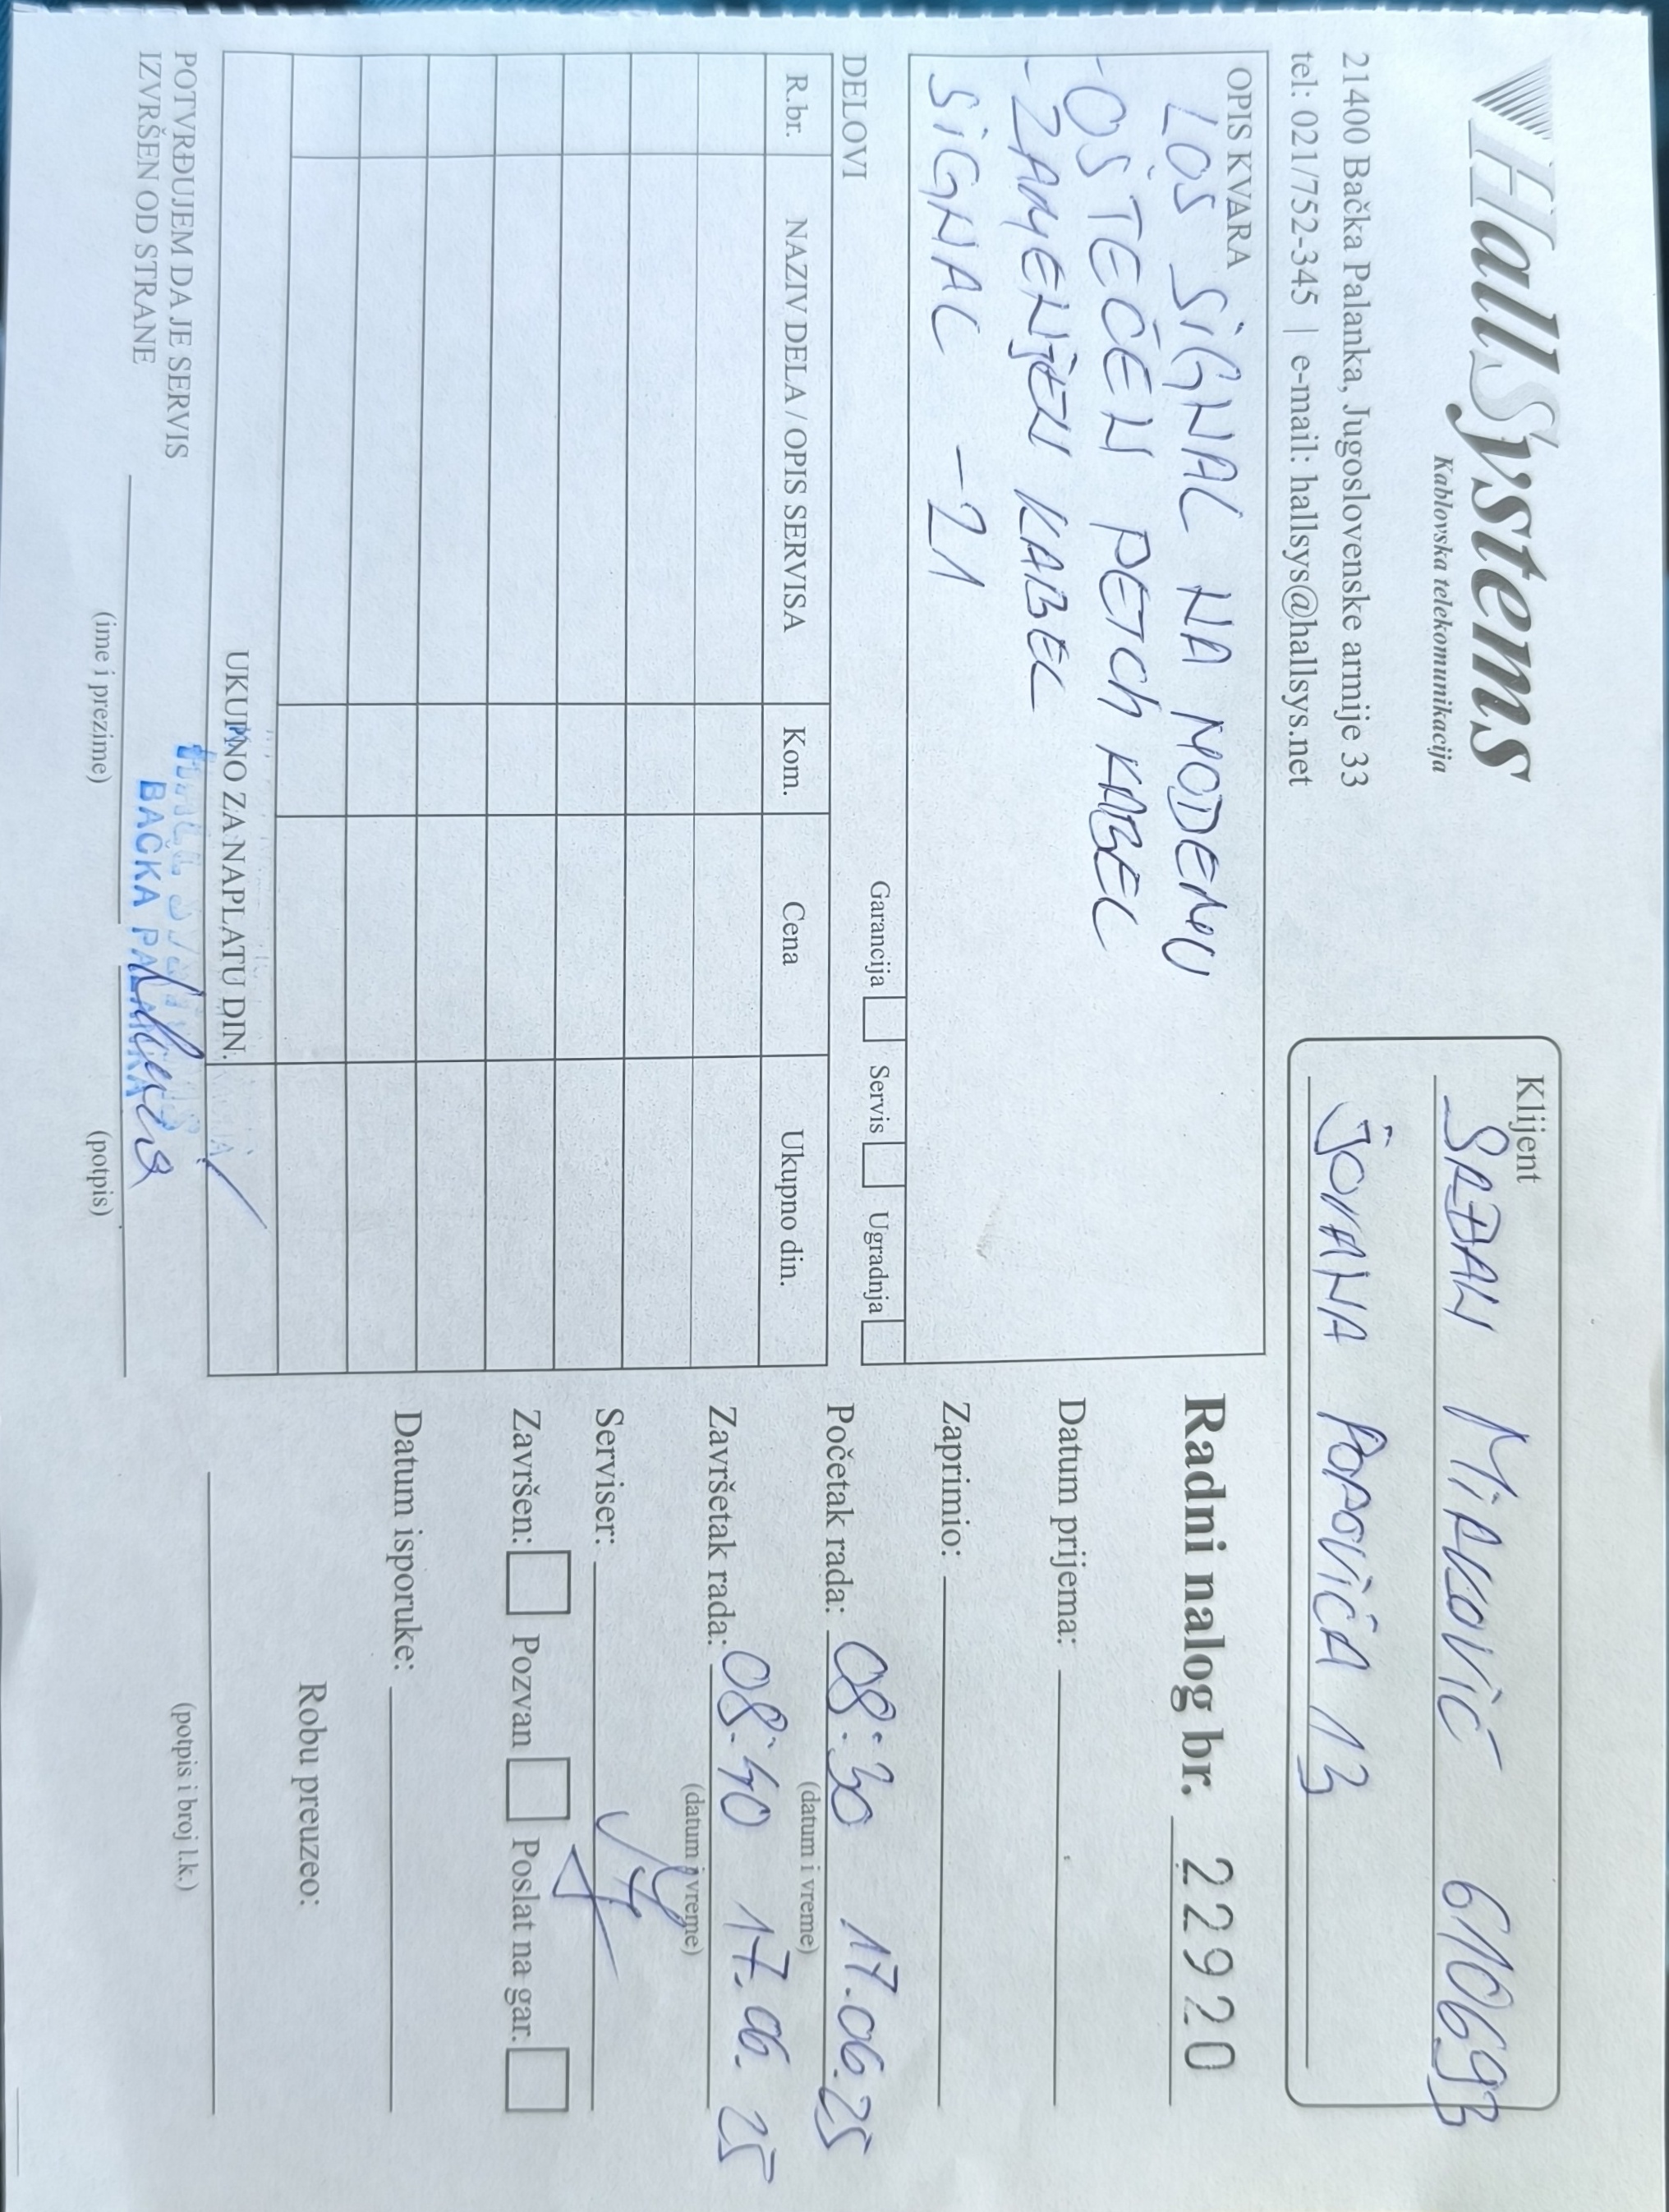 HallSystems
Kablovska telekomunikacija
21400 Bačka Palanka, Jugoslovenske armije 33
tel: 021/752-345 | e-mail: hallsys@hallsys.net
Klijent
SRĐAN MIRKOVIĆ 610693
JOVANA POPOVIĆA 13
OPIS KVARA
LOŠ SIGNAL NA MODEMU
- OŠTEĆEN PETCH KABEL
- ZAMENJEN KABEL
SIGNAL -21
Garancija Servis Ugradnja
DELOVI
R.br. NAZIV DELA / OPIS SERVISA Kom. Cena Ukupno din.
UKUPNO ZA NAPLATU DIN.
POTVRĐUJEM DA JE SERVIS
IZVRŠEN OD STRANE
BAČKA PALANKA
(ime i prezime) (potpis)
Radni nalog br. 22920
Datum prijema:
Zaprimio:
Početak rada: 08:30 17.06.25
(datum i vreme)
Završetak rada: 08:40 17.06.25
(datum i vreme)
Serviser:
Završen: Pozvan Poslat na gar.
Datum isporuke:
Robu preuzeo:
(potpis i broj l.k.)